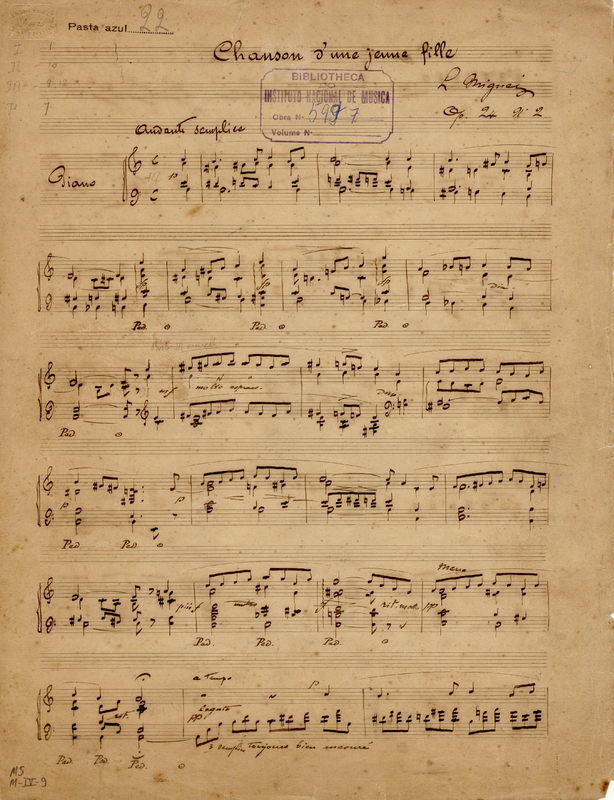 Pasta azul 22
Chanson d'une jeune fille
L Miguez
Op. 24 Nº 2
BIBLIOTHECA
DO
INSTITUTO NACIONAL DE MUSICA
Obra N.
Volume N.
Andante semplice
Piano
p
Ped. Ped. Ped.
molto espress.
Ped.
p p
Ped. Ped.
più f
rit. molto pp
Meno
Ped. Ped. Ped.
a tempo
p
rit.
Legato
pp
toujours bien mesuré
Ped. Ped. Ped.
MS
M-IV-9